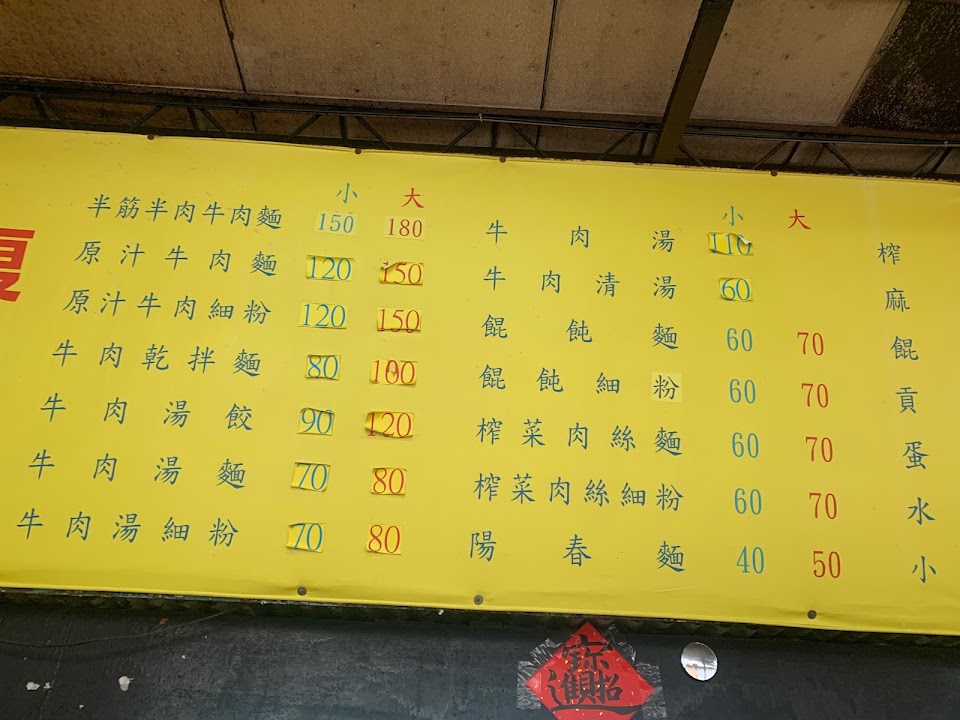 小 大
半筋半肉牛肉麵 150 180
原汁牛肉麵 120 150
原汁牛肉細粉 120 150
牛肉乾拌麵 80 100
牛肉湯餃 90 120
牛肉湯麵 70 80
牛肉湯細粉 70 80
小 大
牛肉湯 110
牛肉清湯 60
餛飩麵 60 70
餛飩細粉 60 70
榨菜肉絲麵 60 70
榨菜肉絲細粉 60 70
陽春麵 40 50
榨
麻
餛
貢
蛋
水
小